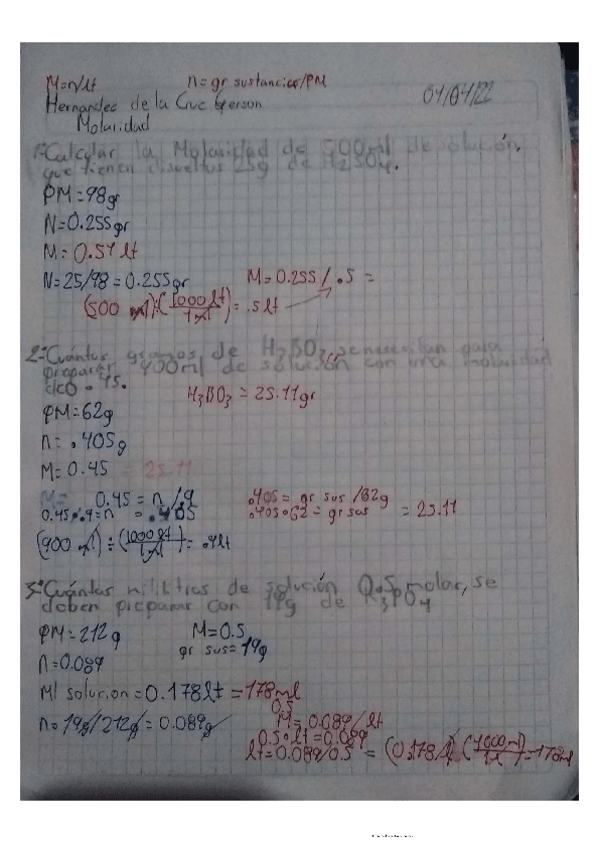 M=n/lt n= gr sustancia/PM
Hernandez de la Cruz Gerson 04/04/22
Molaridad
1-Calcular la Molaridad de 500ml de solución,
que tienen disueltos 25g de H₂SO₄.
PM=98gr
N=0.255gr
M=0.51 lt
N=25/98=0.255gr M=0.255/.5=
(500 ml)÷(1000 lt/1 ml)= .5lt
2-Cuántos gramos de H₃BO₃, se necesitan para
preparar 900ml de solución con una molaridad
de 0.45.
H₃BO₃=25.11gr
PM=62g
n=.405g
M=0.45 = 25.11
M= 0.45=n/.9 .405= gr sus/62g
0.45·.9=n =.405 .405·62= gr sus = 25.11
(900 ml)÷(1000 lt/1 ml)= .9lt
3-Cuántos mililitros de solución 0.5 molar, se
deben preparar con 19g de PO₄
PM=212g M=0.5
gr sus=19g
n=0.089
Ml solucion=0.178lt=178ml
0.5
n=19g/212g=0.089g M=0.089/lt
0.5·lt=0.089
lt=0.089/0.5 = (0.178 l)(1000ml/1l)=178ml